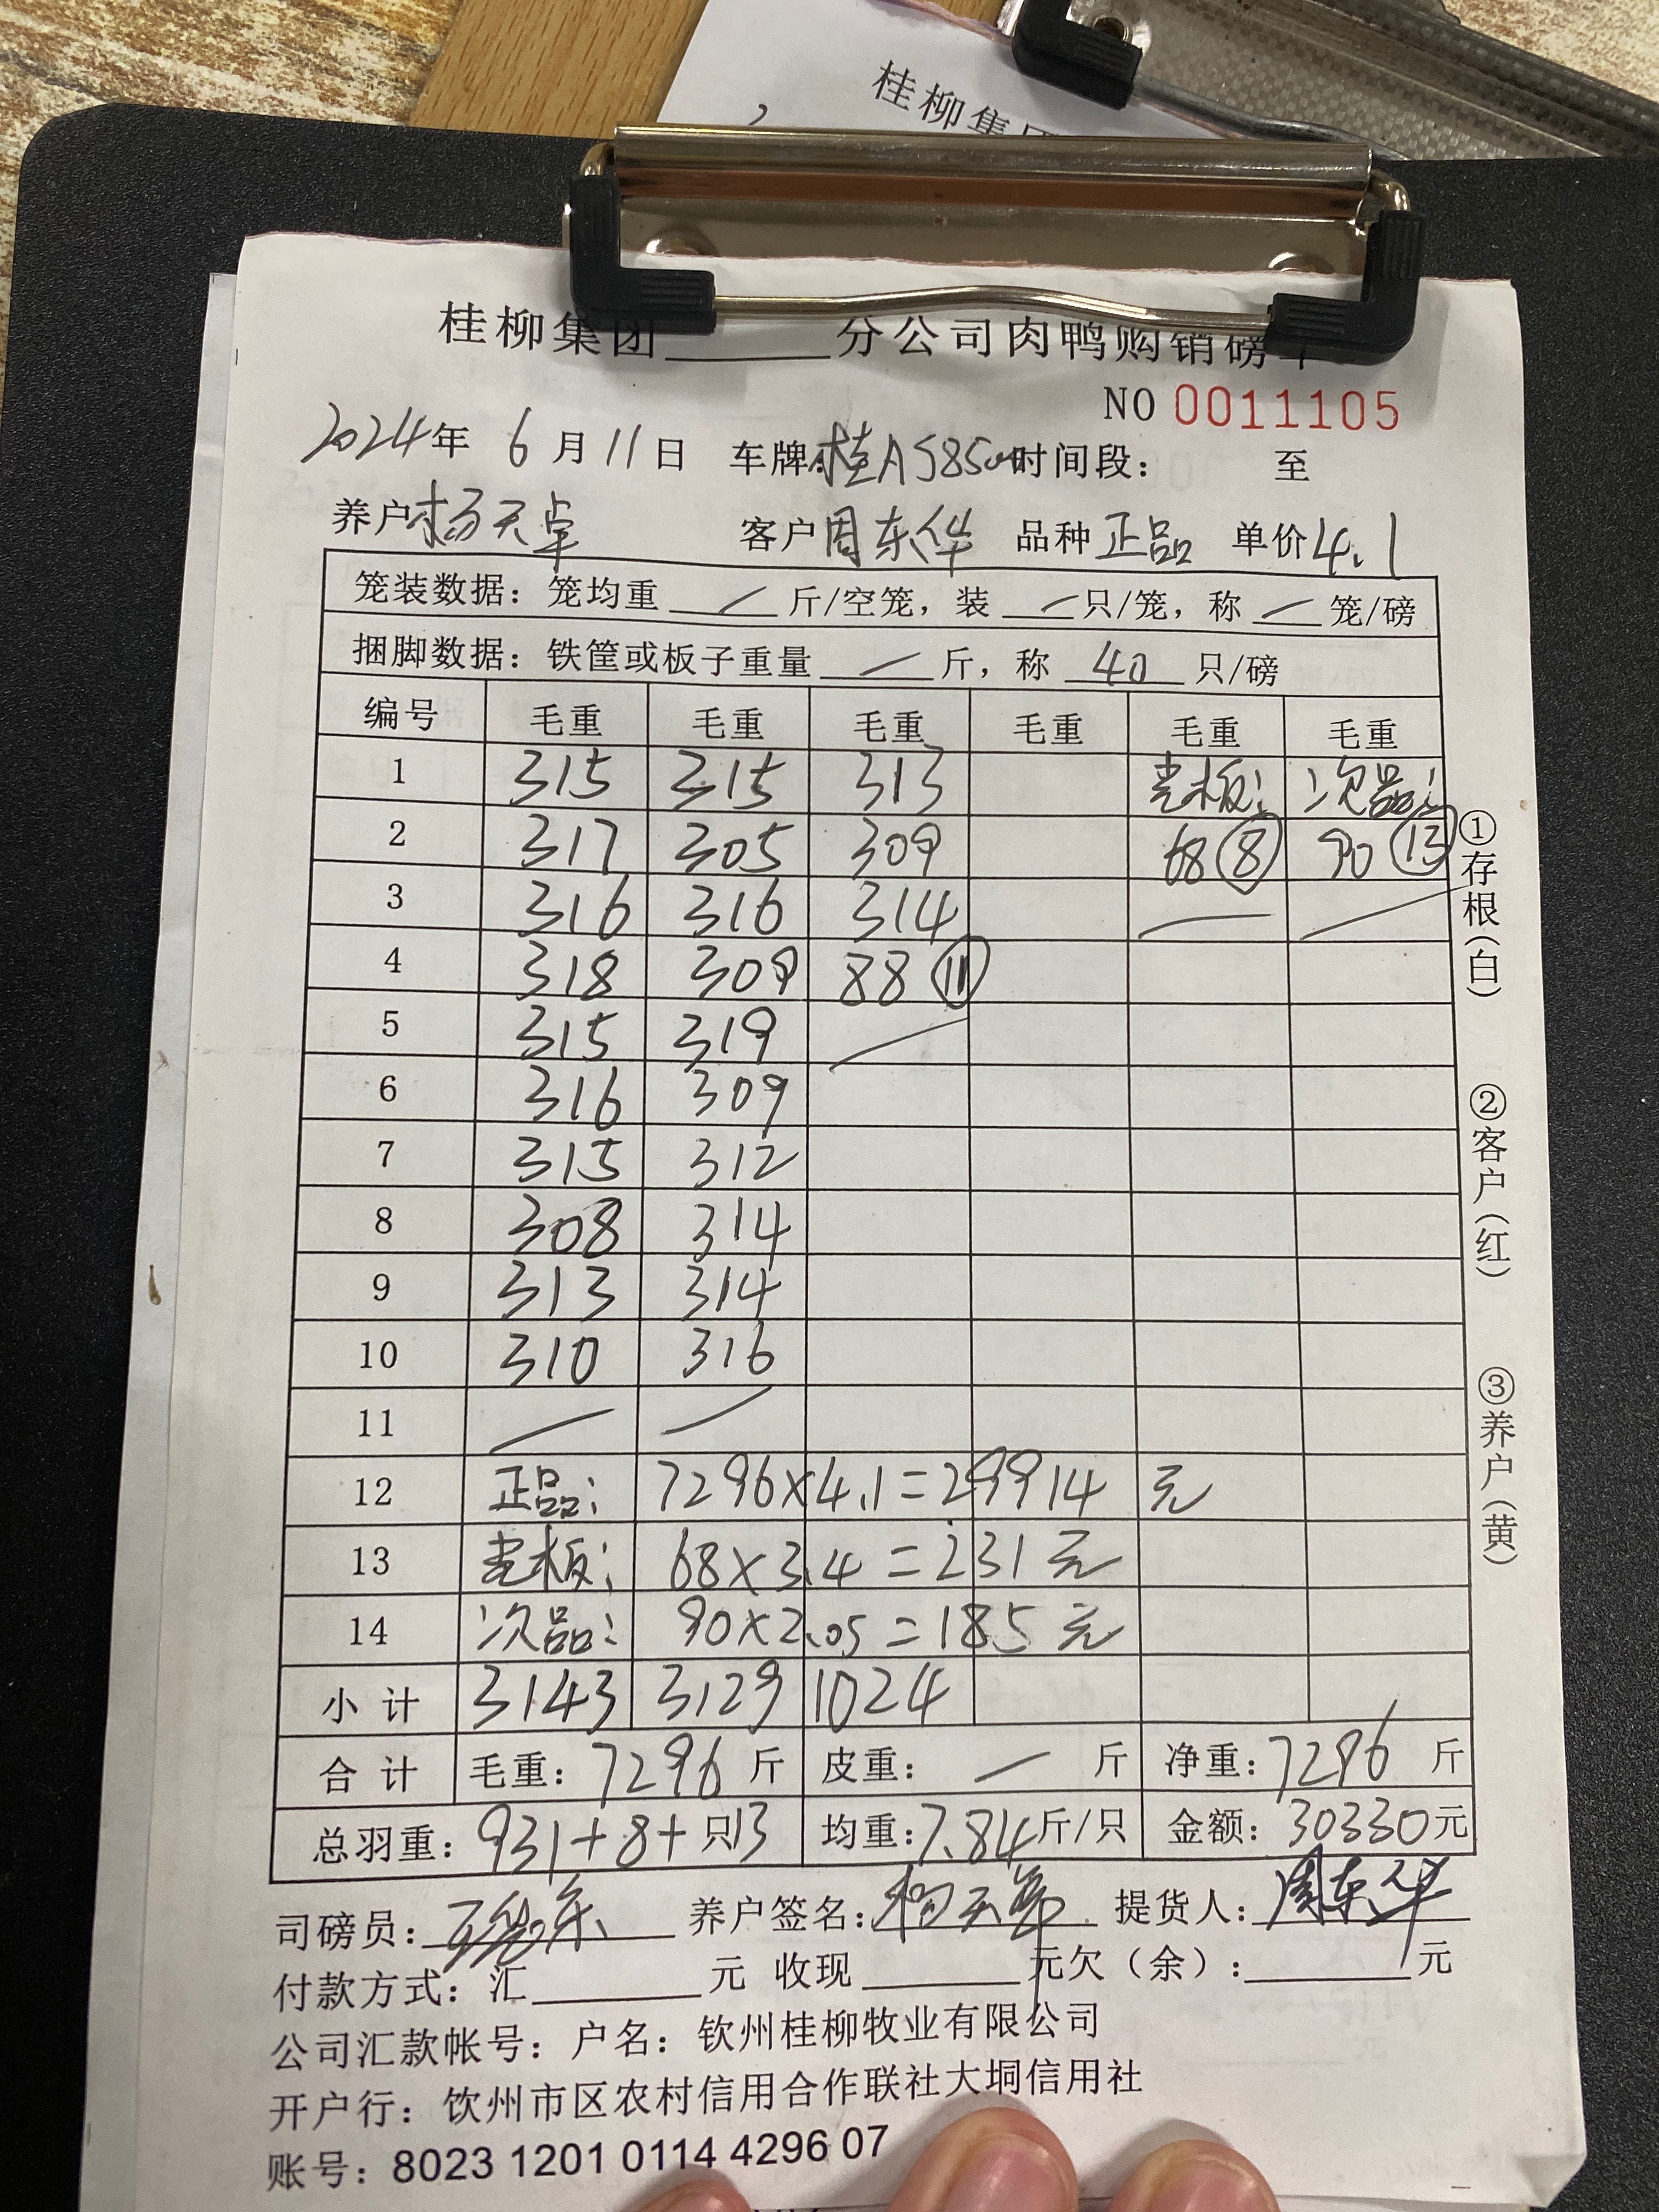 桂柳集团
桂柳集团______分公司肉鸭购销磅单
NO 0011105
2024年 6月11日 车牌:桂A585 时间段: 至
养户 杨天卓 客户 周东华 品种 正品 单价 4.1
笼装数据: 笼均重 / 斤/空笼, 装 / 只/笼, 称 / 笼/磅
捆脚数据: 铁筐或板子重量 / 斤, 称 40 只/磅
编号 毛重 毛重 毛重 毛重 毛重 毛重
1 315 315 313 老板: 次品:
2 317 305 309 68 ⑧ 90 ⑬
3 316 316 314 / /
4 318 309 88 ⑪
5 315 319 /
6 316 309
7 315 312
8 308 314
9 313 314
10 310 316
11 / /
12 正品: 7296×4.1=29914 元
13 老板: 68×3.4=231元
14 次品: 90×2.05=185元
小计 3143 3129 1024
合计 毛重: 7296 斤 皮重: / 斤 净重: 7296 斤
总羽重: 931+8+只13 均重: 7.84斤/只 金额: 30330元
司磅员: 养户签名: 杨天 提货人: 周东华
付款方式: 汇______元 收现______元欠(余):______元
公司汇款帐号: 户名: 钦州桂柳牧业有限公司
开户行: 钦州市区农村信用合作联社大垌信用社
账号: 8023 1201 0114 4296 07
①存根(白)
②客户(红)
③养户(黄)